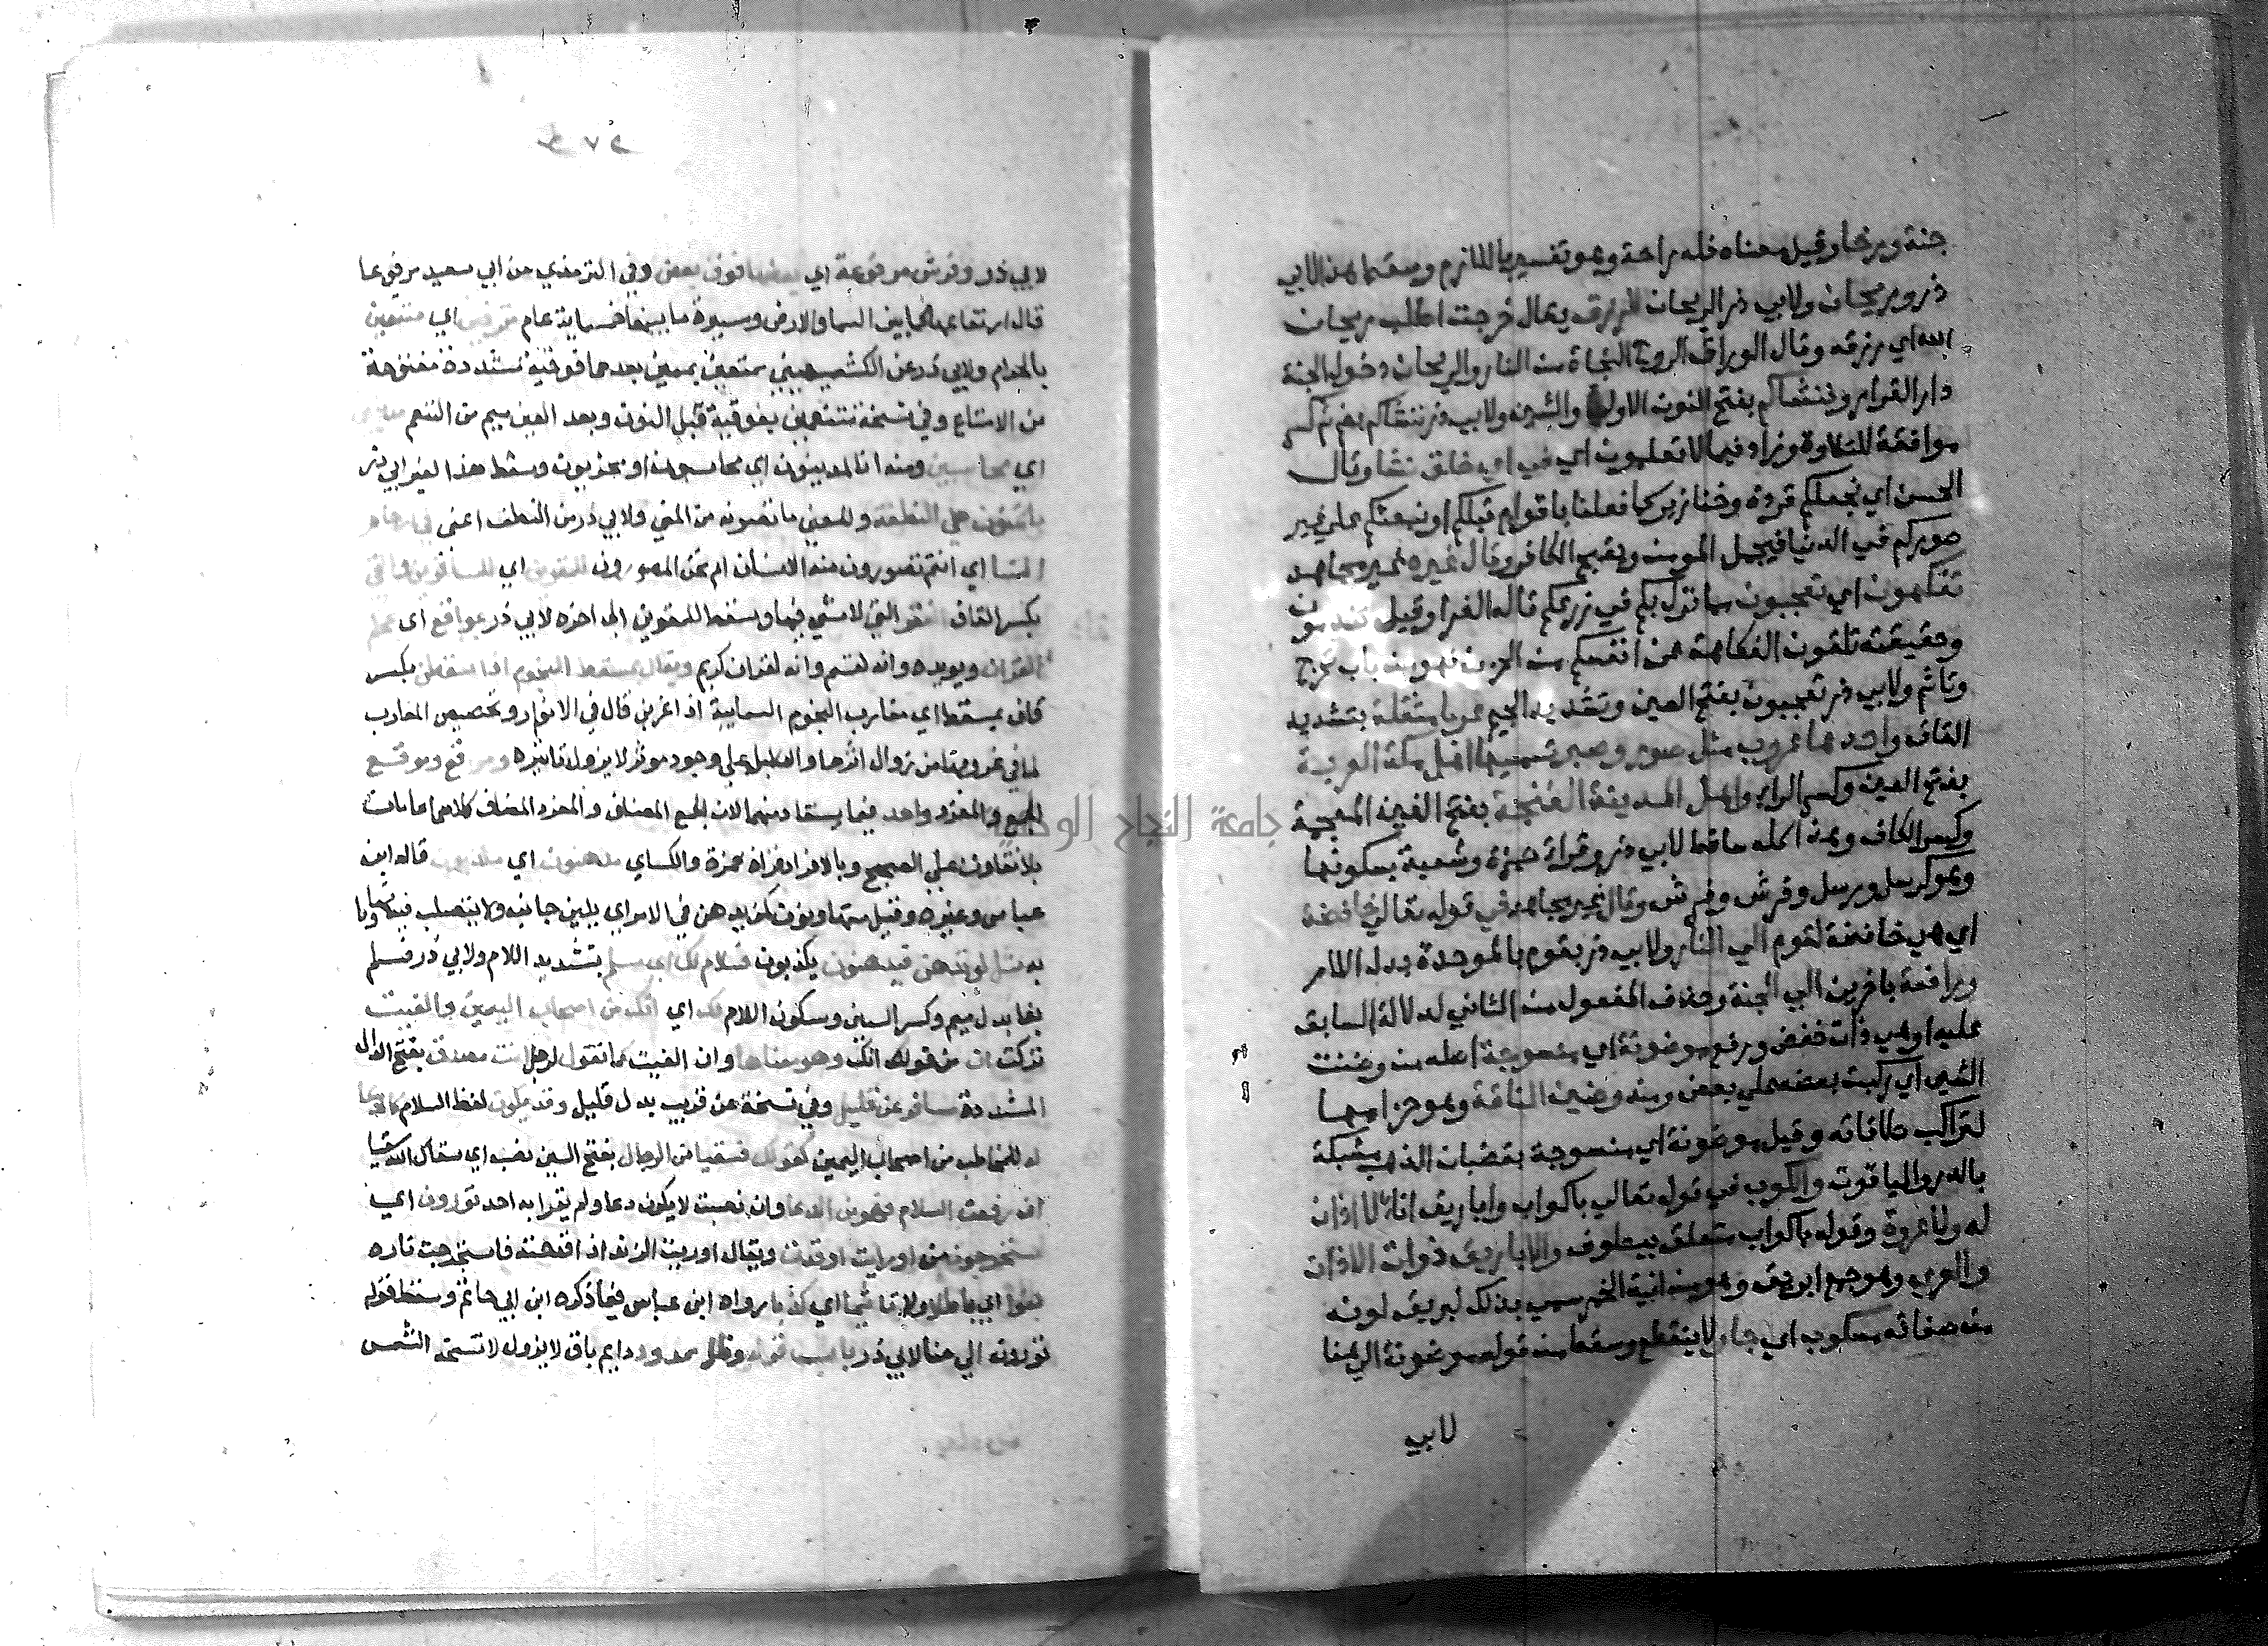 جنة ورخا وقيل معناه فله راحة وهو تفسير باللازم وسقط هذا لابي
ذر وريحان ولابي ذر الريحان الرزق يقال خرجت اطلب ريحان
الله اي رزقه وقال الوراق الروح النجاة من النار والريحان دخول الجنة
دار القرار وننشاكم بفتح النون الاولي والشين ولابي ذر ننشاكم بضم ثم كسر
موافقة للتلاوة وزاد فيما لا تعلمون اي في اي خلق نشا وقال
الحسن اي نجعلكم قردة وخنازير كما فعلنا باقوام قبلكم او نبعثكم علي غير
صوركم في الدنيا فيجمل المومن ويقبح الكافر وقال غيره غير مجاهد
تفكهون اي تعجبون مما نزل بكم في زرعكم قاله الفرا وقيل تندمون
وحقيقته تلقون الفكاهة عن انفسكم من الحزن فهو من باب تحرج
وتاثم ولابي ذر تعجبون بفتح العين وتشديد الجيم عربا مثقلة بتشديد
القاف واحدها عروب مثل صبور وصبر يسميها اهل مكة العربة
بفتح العين وكسر الراء واهل المدينة الغنجة بفتح الغين المعجمة
وكسر الكاف وهذا كله ساقط لابي ذر وقراة حمزة وشعبة بسكونها
وهو كرسل ورسل وفرش وفرش وقال غير مجاهد في قوله تعالي خافضة
اي هي خافضة لقوم الي النار ولابي ذر بقوم بالموحدة بدل اللام
ورافعة باخرين الي الجنة وحذف المفعول من الثاني لدلالة السابق
عليه او هي ذات خفض ورفع موضونة اي منسوجة اصله من وضنت
الشي اي ركبت بعضه علي بعض ومنه وضين الناقة وهو حزامها
لتراكب طاقاته وقيل موضونة اي منسوجة بقضبان الذهب مشبكة
بالدر والياقوت والكوب في قوله تعالي باكواب واباريق اناء لا اذان
له ولا عروة وقوله باكواب متعلق بيطوف والاباريق ذوات الاذان
والعري وهو جمع ابريق وهو من انية الخمر سمي بذلك لبريق لونه
من صفائه مسكوب اي جار لا ينقطع وسقط من قوله موضونة الي هنا
لابي
لابي ذر وفرش مرفوعة اي بعضها فوق بعض وفي الترمذي عن ابي سعيد مرفوعا
قال ارتفاعها كما بين السما والارض ومسيرة ما بينهما خمسماية عام مترفين اي متنعمين
بالحرام ولابي ذر عن الكشميهني متمتعين بميمين بعدهما فوقية مشددة مفتوحة
من الامتاع وفي نسخة متنعمين بفوقية قبل النون وبعد العين ميم من التنعم
اي محاسبين ومنه انا لمدينون اي محاسبون او مجزيون وسقط هذا لغير ابي ذر
ما تمنون هي النطفة والمعني ما تصبونه من المني ولابي ذر من النطف اعني في ارحام
النسا اي انتم تصورون منه الانسان ام نحن المصورون للمقوين اي للمسافرين والقي
بكسر القاف القفر التي لا شي فيها وسقط للمقوين الي اخره لابي ذر بمواقع اي بمحكم
القران ويويده وانه لقسم وانه لقران كريم ويقال بمسقط النجوم اذا سقطن بكسر
قاف بمسقط اي مغارب النجوم السماية اذا غربن قال في الانوار وتخصيص المغارب
لما في غروبها من زوال اثرها والدليل علي وجود موثر لا يزول تاثيره ومواقع وموقع
الجمع والمفرد واحد فيما يستفاد منهما لان الجمع المضاف والمفرد المضاف كلاهما عامان
بلا تفاوت علي الصحيح وبالافراد قراة حمزة والكساي مدهنون اي مكذبون قاله ابن
عباس وغيره وقيل متهاونون كمن يدهن في الامر اي يلين جانبه ولا يتصلب فيه تهاونا
به مثل لو تدهن فيدهنون يكذبون فسلام لك اي مسلم بتشديد اللام ولابي ذر فسلم
بفا بدل ميم وكسر السين وسكون اللام لك اي انك من اصحاب اليمين والغيت
تركت ان من قولك انك وهو معناها وان الغيت كما تقول لرجل انت مصدق بفتح الدال
المشددة مسافر عن قليل وفي نسخة عن قريب بدل قليل وقد يكون لفظ السلام كالدعا
له للمخاطب من اصحاب اليمين كقولك فسقيا من الرجال بفتح السين نصب اي سقاك الله سقيا
ان رفعت السلام فهو من الدعا وان نصبت لا يكون دعا ولم يقرا به احد تورون اي
تستخرجون من اوريت اوقدت ويقال اوريت الزند اذا قدحته فاستخرجت ناره
لغوا اي باطلا ولا تاثيما اي كذبا رواه ابن عباس فيما ذكره ابن ابي حاتم وسقط قوله
تورون الي هنا لابي ذر باب قوله وظل ممدود دايم باق لا يزول لا تنسخه الشمس
جامعة النجاح الوطنية